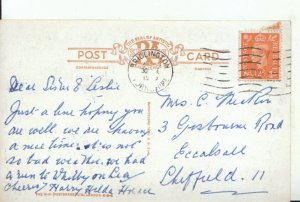 THE SEAL OF ARTISTIC
POST CARD
CORRESPONDENCE
ADDRESS
BRIDLINGTON
Dear Sister & Leslie
Just a line hoping you
are well we are having
a nice time it is not
so bad weather, we had
a run to Whitby on
Cheerio Harry Hilda
Mrs. C.
3 Gisbourne Road
Ecclesall
Sheffield. 11